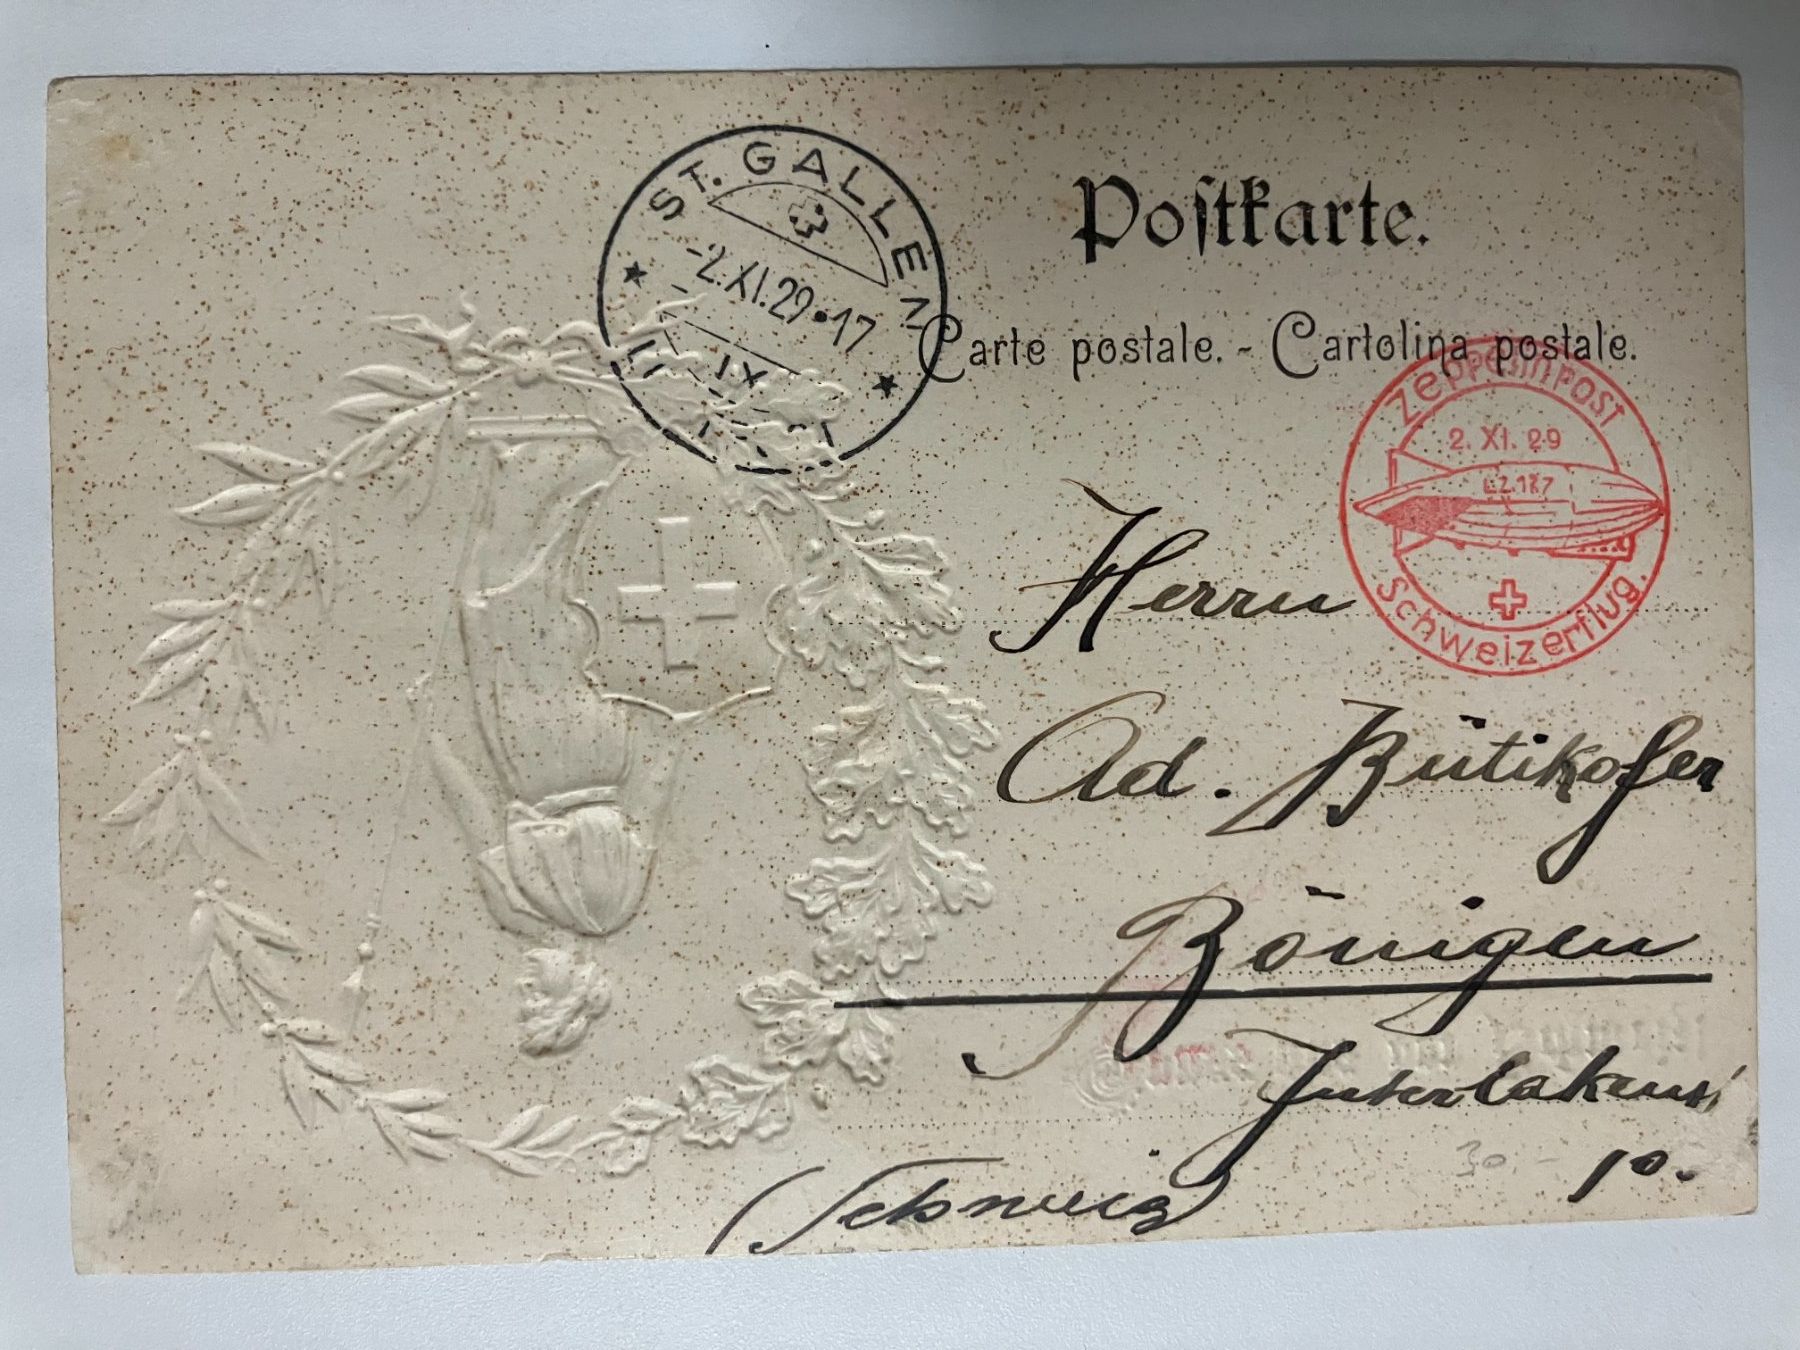 ST. GALLEN 1
-2.XI.29•17
Postkarte.
Carte postale. - Cartolina postale.
Zeppelinpost
2. XI. 29
L.Z.127
Schweizerflug.
Herrn
Ad. Bütikofer
Bönigen
Interlaken
(Schweiz)
30.-
10.